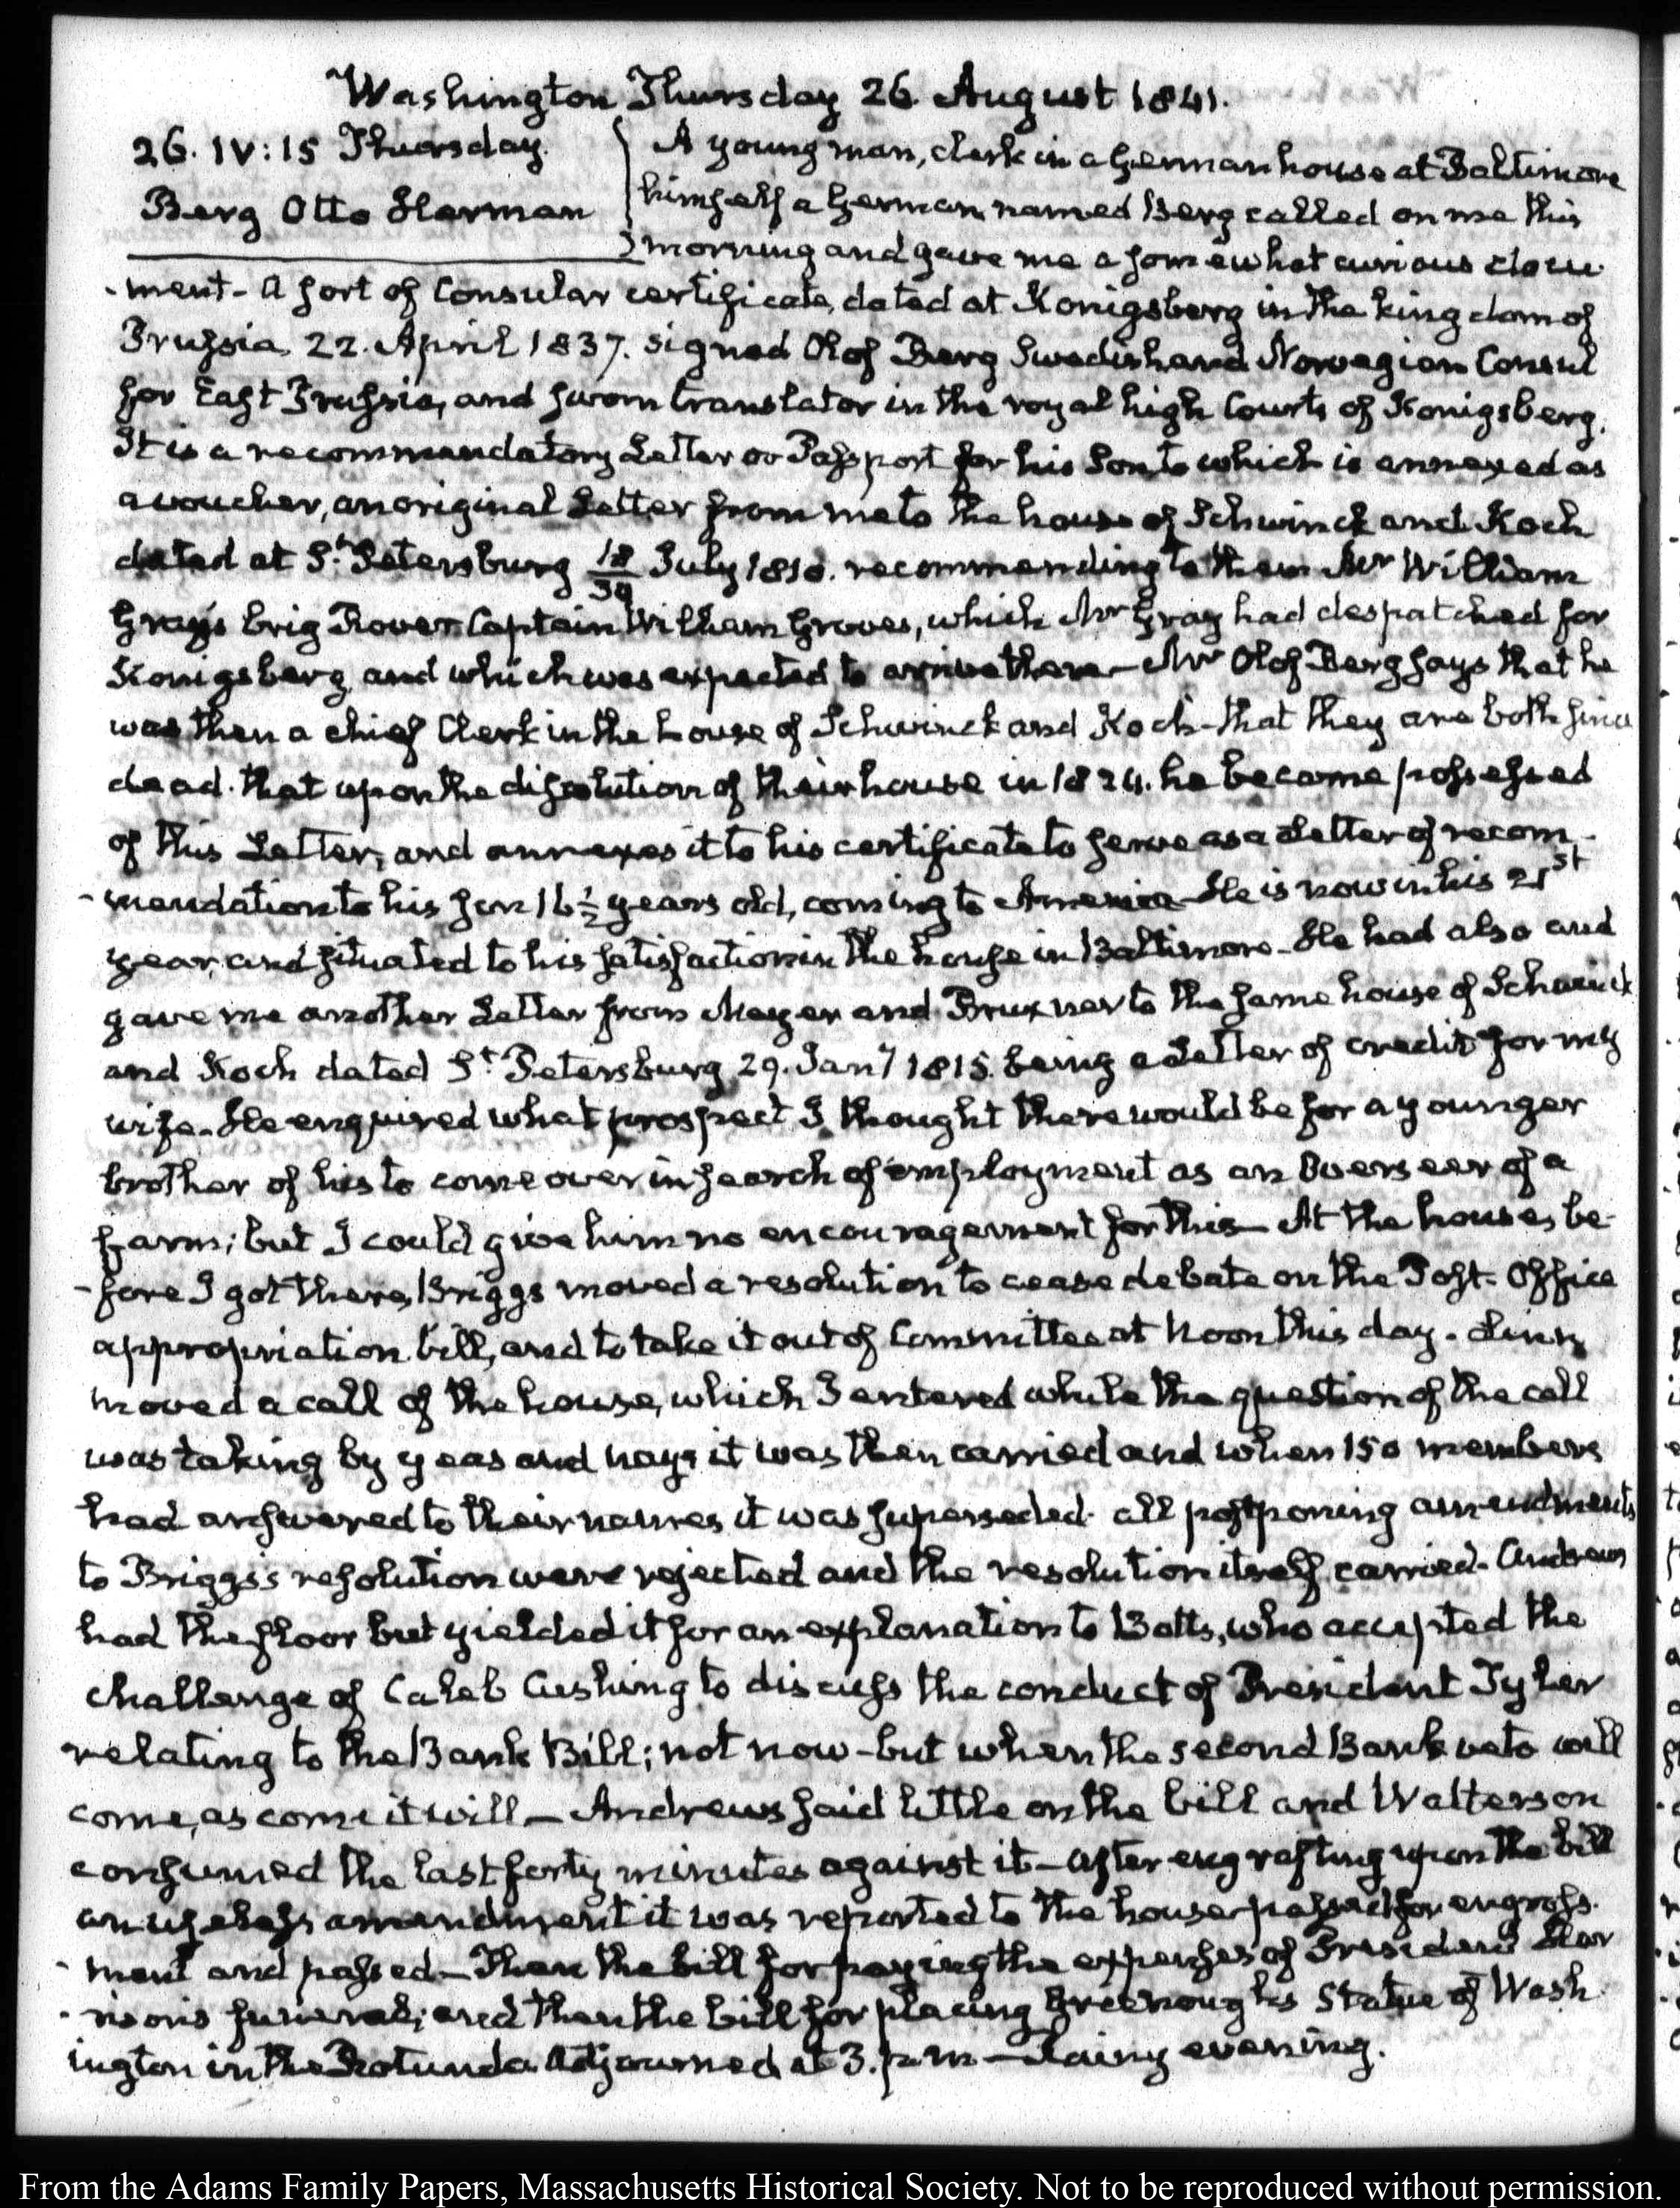 Washington Thursday 26. August 1841.
26. IV:15 Thursday.
Berg Otto Herman
A young man, clerk in a German house at Baltimore
himself a German named Berg called on me this
morning and gave me a somewhat curious docu
-ment- a sort of Consular certificate, dated at Konigsberg in the kingdom of
Prussia, 22. April 1837. signed Olof Berg Swedish and Norwegian Consul
for East Prussia, and sworn translator in the royal high Courts of Konigsberg.
It is a recommendatory Letter or Passport for his Son to which is annexed as
a voucher, an original Letter from me to the house of Schwinck and Koch
dated at St. Petersburg 18/30 July 1810. recommending to them Mr William
Gray's brig Rover Captain William Groves, which Mr Gray had despatched for
Konigsberg, and which was expected to arrive there— Mr Olof Berg says that he
was then a chief Clerk in the house of Schwinck and Koch- that they are both since
dead. that upon the dissolution of their house in 1824. he became possessed
of this Letter, and annexes it to his certificate to serve as a Letter of recom
-mendation to his son 16½ years old, coming to America— He is now in his 21st
year, and situated to his satisfaction in the house in Baltimore- He had also and
gave me another Letter from Meyer and Bruxner to the same house of Schwinck
and Koch dated St. Petersburg 29. Jany 1815. being a Letter of credit for my
wife. He enquired what prospect I thought there would be for a younger
brother of his to come over in search of employment as an Overseer of a
farm; but I could give him no encouragement for this— At the house, be-
-fore I got there, Briggs moved a resolution to cease debate on the Post-Office
appropriation bill, and to take it out of Committee at Noon this day. Linn
moved a call of the house, which I entered while the question of the call
was taking by yeas and nays it was then carried and when 150 members
had answered to their names it was superseded. all postponing amendments
to Briggs's resolution were rejected and the resolution itself carried- Andrews
had the floor but yielded it for an explanation to Botts, who accepted the
challenge of Caleb Cushing to discuss the conduct of President Tyler
relating to the Bank Bill; not now- but when the second Bank veto will
come, as come it will— Andrews said little on the bill and Watterson
consumed the last forty minutes against it— after engrafting upon the bill
an useless amendment it was reported to the house passed for engross
- ment and passed— Then the bill for paying the expenses of President Har
- rison's funeral; and then the bill for placing Greenough's Statue of Wash
- ington in the Rotunda. Adjourned at 3. p.m.— Rainy evening.
From the Adams Family Papers, Massachusetts Historical Society. Not to be reproduced without permission.